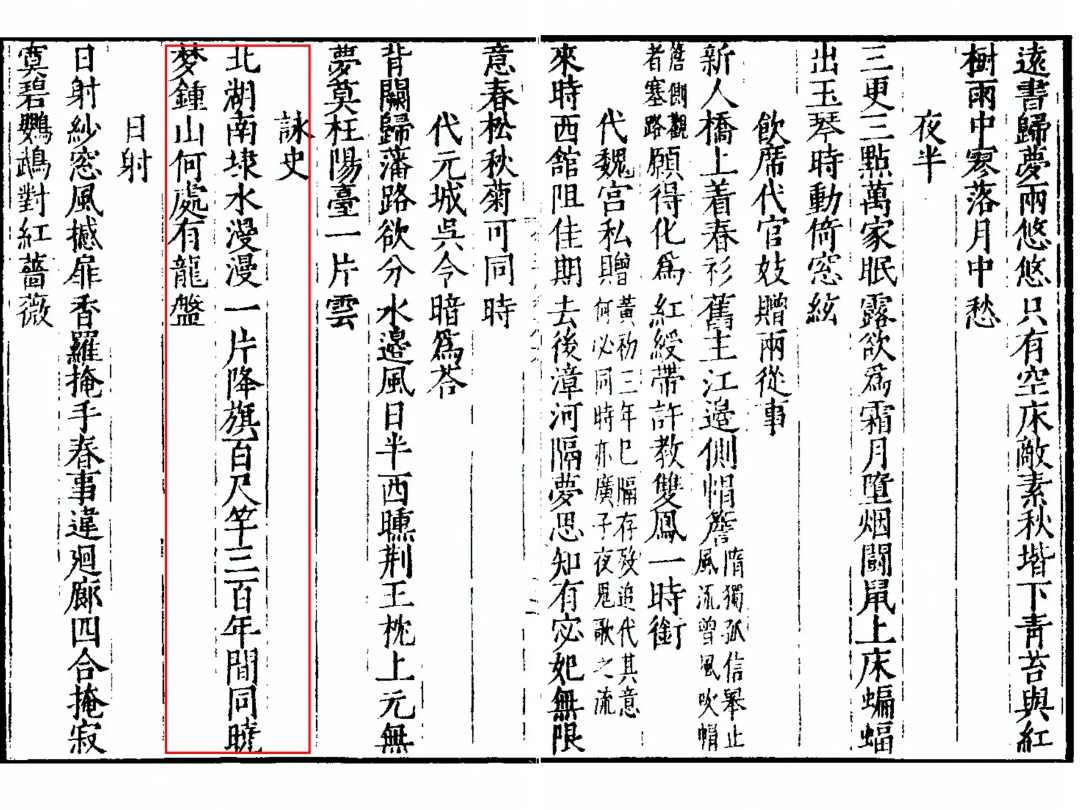 遠書歸夢兩悠悠只有空床敵素秋堦下青苔與紅
樹雨中寥落月中愁
夜半
三更三點萬家眠露欲爲霜月墮烟鬬鼠上床蝙蝠
出玉琴時動倚窓絃
飲席代官妓贈兩從事
新人橋上着春衫舊主江邊側帽簷隋獨孤信舉止風流曾風吹帽
簷側觀者塞路願得化爲紅綬帶許教雙鳳一時銜
代魏宮私贈黃初三年已隔存歿追代其意何必同時亦廣子夜鬼歌之流
來時西館阻佳期去後漳河隔夢思知有宓妃無限
意春松秋菊可同時
代元城吳令暗爲荅
背闕歸藩路欲分水邊風日半西曛荆王枕上元無
夢莫枉陽臺一片雲
詠史
北湖南埭水漫漫一片降旗百尺竿三百年間同曉
梦鍾山何處有龍盤
日射
日射紗窓風撼扉香羅掩手春事違迴廊四合掩寂
寞碧鸚鵡對紅薔薇